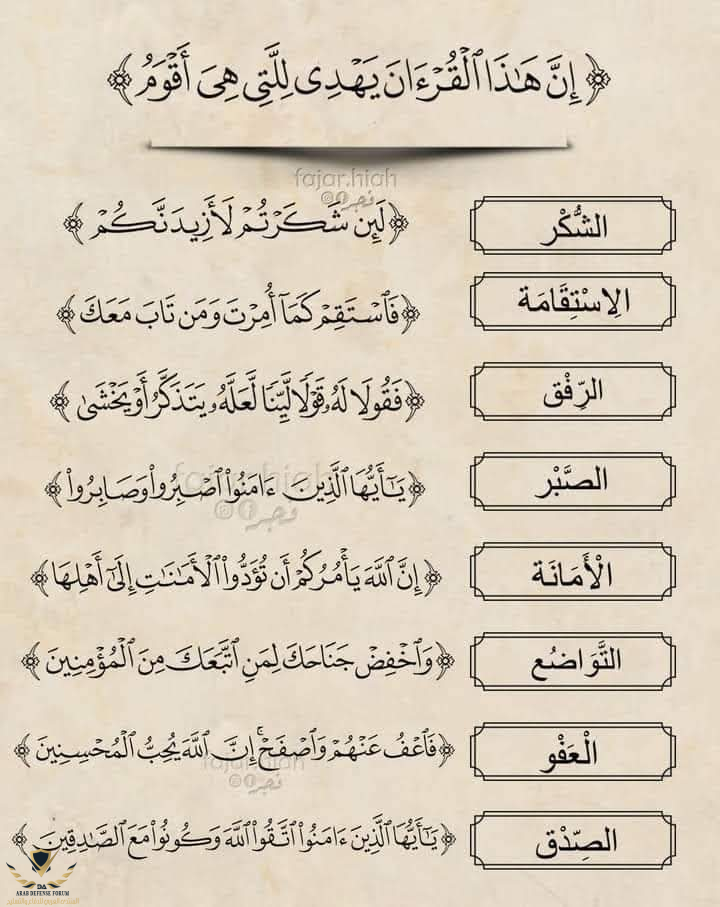 ﴿ إِنَّ هَٰذَا ٱلْقُرْءَانَ يَهْدِى لِلَّتِى هِىَ أَقْوَمُ ﴾
fajar.hiah
فجر
الشُّكْر ﴿ لَئِن شَكَرْتُمْ لَأَزِيدَنَّكُمْ ﴾
الِاسْتِقَامَة ﴿ فَٱسْتَقِمْ كَمَآ أُمِرْتَ وَمَن تَابَ مَعَكَ ﴾
الرِّفْق ﴿ فَقُولَا لَهُۥ قَوْلًا لَّيِّنًا لَّعَلَّهُۥ يَتَذَكَّرُ أَوْ يَخْشَىٰ ﴾
fajar.hiah
الصَّبْر ﴿ يَـٰٓأَيُّهَا ٱلَّذِينَ ءَامَنُوا۟ ٱصْبِرُوا۟ وَصَابِرُوا۟ ﴾
فجر
الْأَمَانَة ﴿ إِنَّ ٱللَّهَ يَأْمُرُكُمْ أَن تُؤَدُّوا۟ ٱلْأَمَـٰنَـٰتِ إِلَىٰٓ أَهْلِهَا ﴾
التَّوَاضُع ﴿ وَٱخْفِضْ جَنَاحَكَ لِمَنِ ٱتَّبَعَكَ مِنَ ٱلْمُؤْمِنِينَ ﴾
الْعَفْو ﴿ فَٱعْفُ عَنْهُمْ وَٱصْفَحْ ۚ إِنَّ ٱللَّهَ يُحِبُّ ٱلْمُحْسِنِينَ ﴾
fajar.hiah
فجر
الصِّدْق ﴿ يَـٰٓأَيُّهَا ٱلَّذِينَ ءَامَنُوا۟ ٱتَّقُوا۟ ٱللَّهَ وَكُونُوا۟ مَعَ ٱلصَّـٰدِقِينَ ﴾
DA
ARAB DEFENSE FORUM